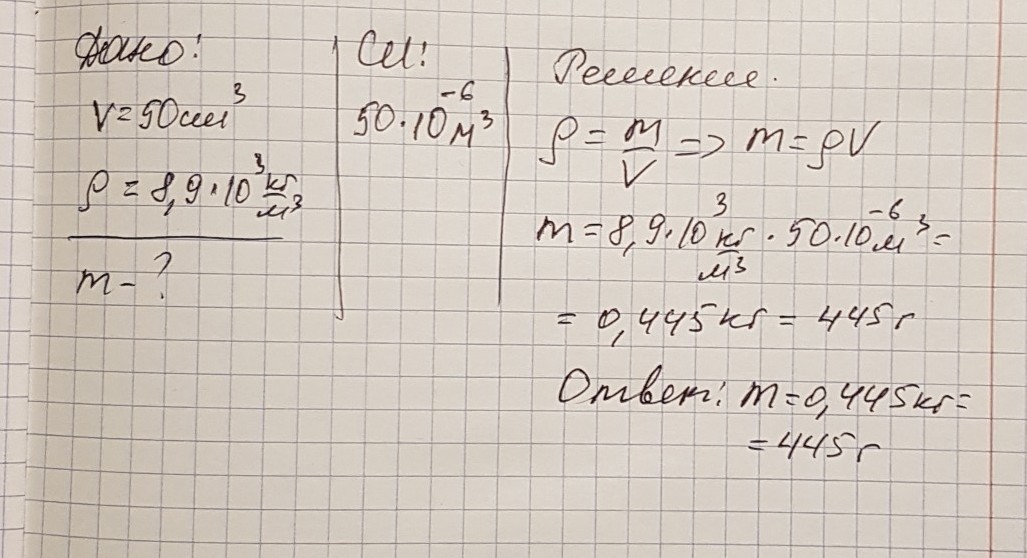 Дано:
V=50см³
ρ = 8,9·10³ кг/м³
m - ?
СИ:
50·10⁻⁶м³
Решение.
ρ = m/V => m=ρV
m=8,9·10³ кг/м³ · 50·10⁻⁶м³=
= 0,445кг = 445г
Ответ: m=0,445кг=
=445г